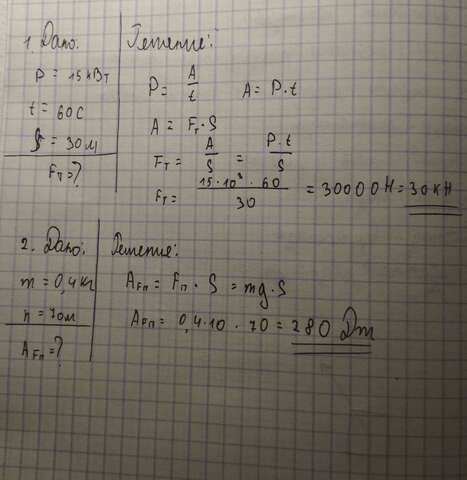 1. Дано:
P = 15 кВт
t = 60 С
S = 30 м
Fт = ?
Решение:
P = A/t A = P·t
A = Fт · S
Fт = A/S = P·t/S
Fт = 15·10³·60/30 = 30000 Н = 30 кН
2. Дано:
m = 0,4 кг
h = 70 м
AFп = ?
Решение:
AFп = Fп · S = mg·S
AFп = 0,4·10·70 = 280 Дж